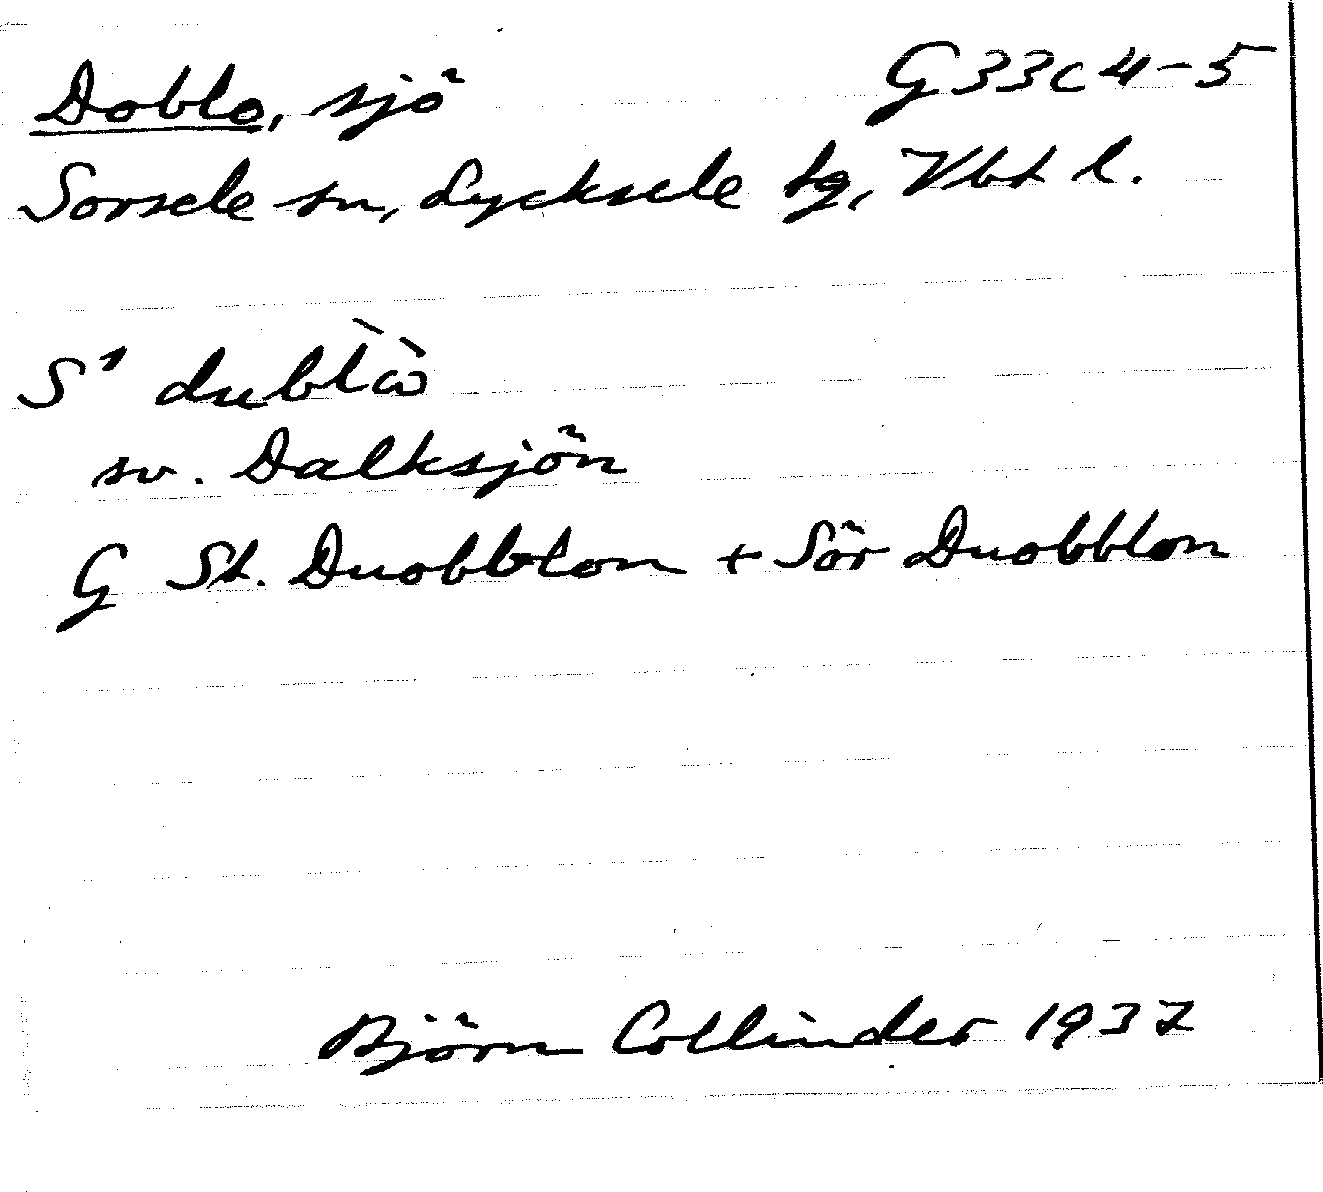 Doblo, sjö G33c4-5
Sorsele sn, Lycksele tg, Vbt l.
S¹
sv. Dalksjön
G St. Duobblon + Sör Duobblon
Björn Collinder 1937